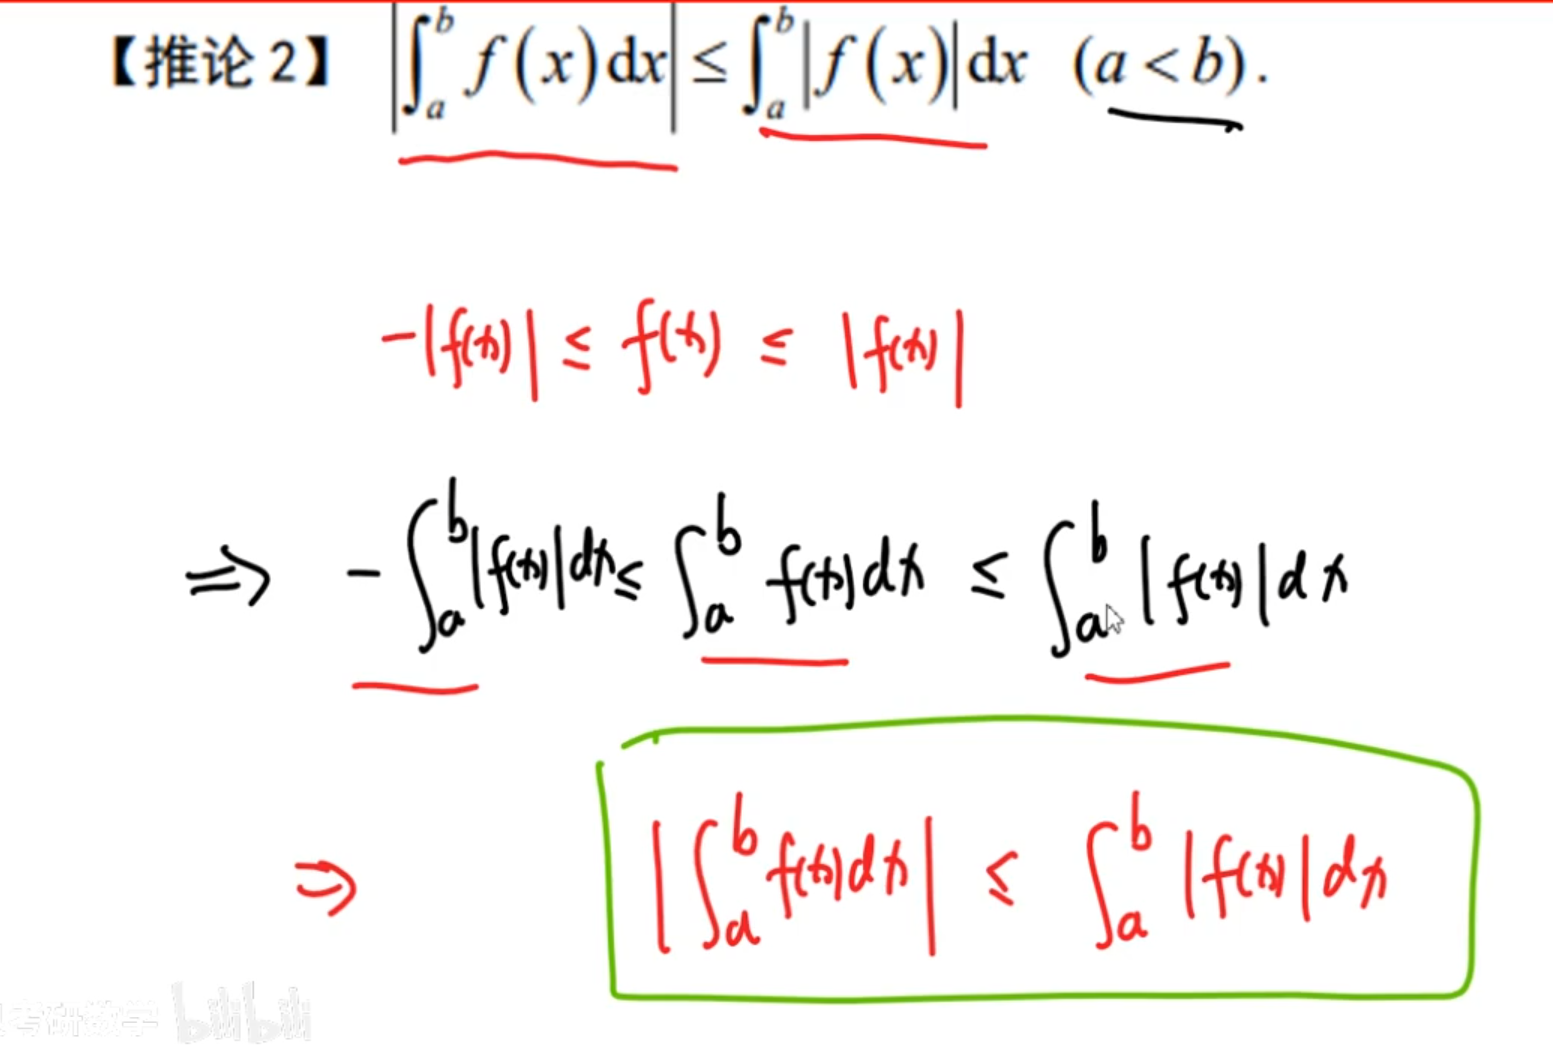 【推论 2】 |∫_a^b f(x)dx| ≤ ∫_a^b |f(x)|dx (a < b).
-|f(x)| ≤ f(x) ≤ |f(x)|
⇒ -∫_a^b |f(x)|dx ≤ ∫_a^b f(x)dx ≤ ∫_a^b |f(x)|dx
⇒ |∫_a^b f(x)dx| ≤ ∫_a^b |f(x)|dx
考研数学 bilibili